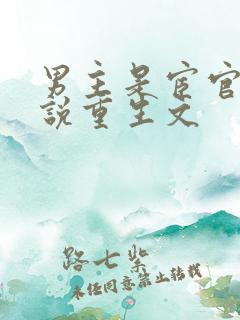 男主是宦官
说重生文
路七紫
未经同意禁止转载